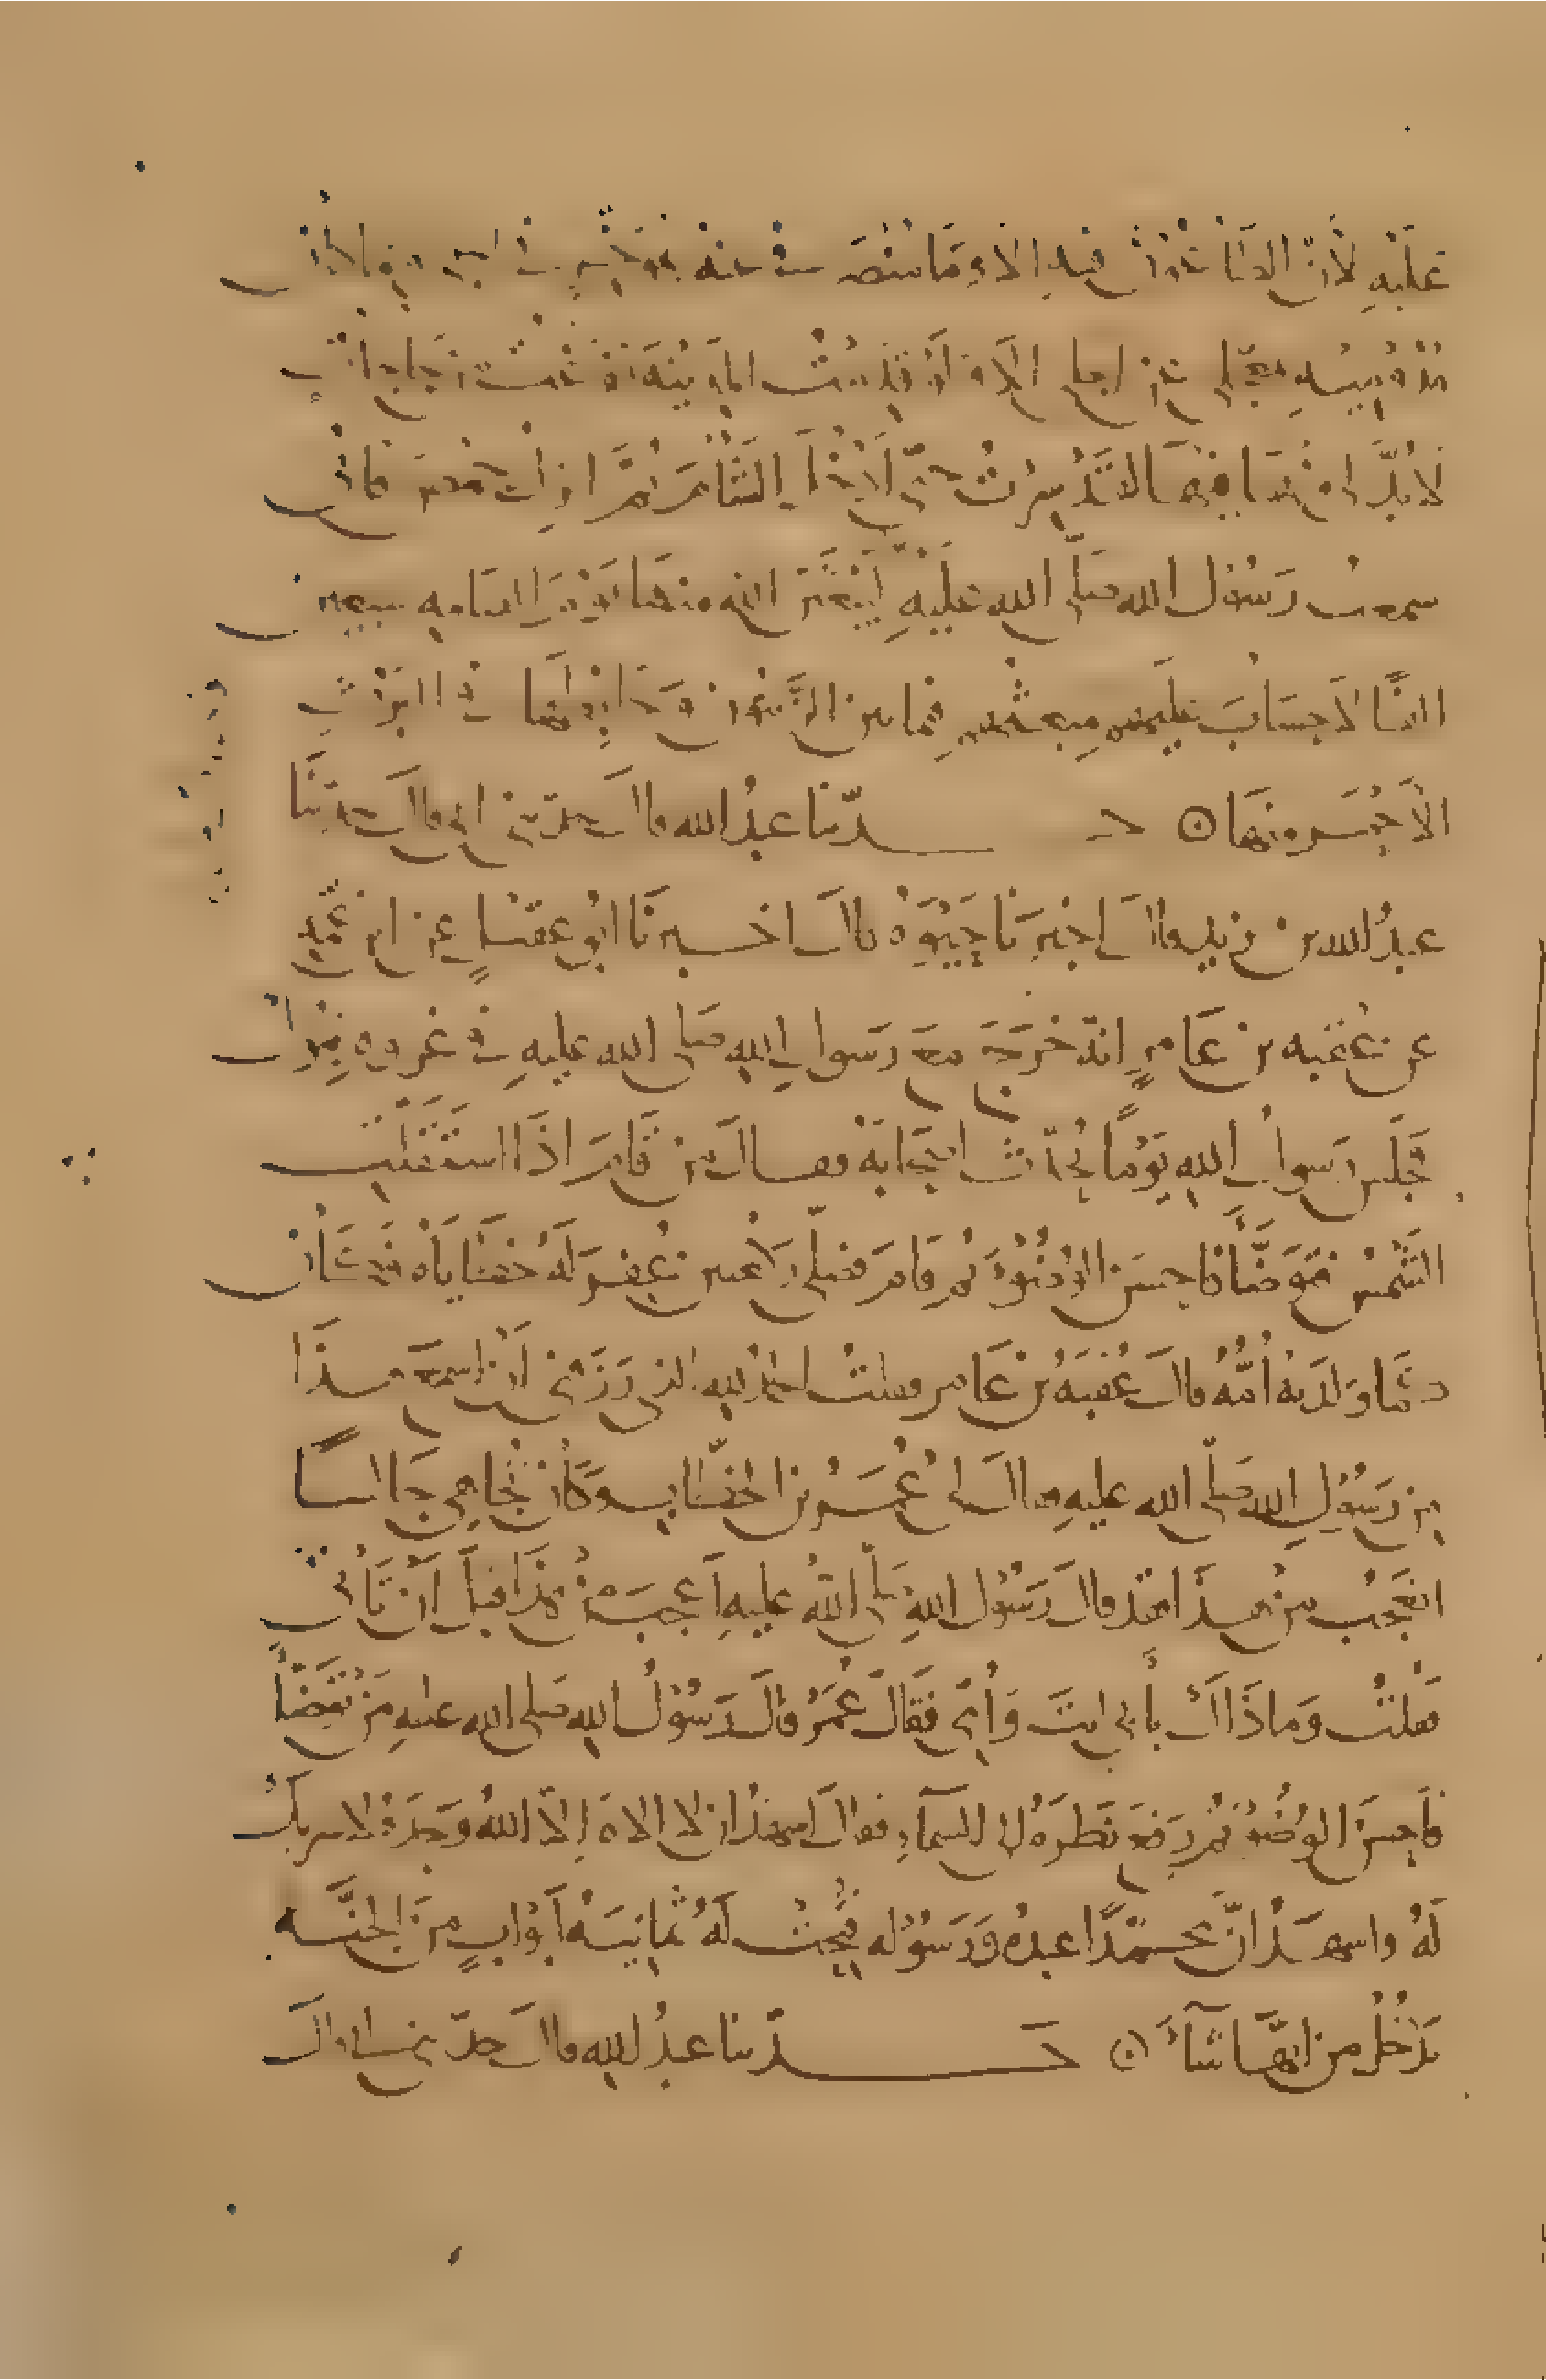 عَلَيْهِ لأنّ الطاعون فيه الا وما
عن اجل الا وان قدمت المدينة ففرغت حاجاتي
لا بُدَّ لي منها فيها لقد سرت حتى ادخل الشام ثم انزل حمص فاني
سمعت رَسُول الله صَلّى الله عليه لَيَبْعَثَنّ الله منها يَوْمَ القيامه سبعين
الفًا لا حِسَابَ عليهم مبعثهم فيما بين الزيتون وحايطها في البَرْث
الأحمر منها ۞ حـــدّثنا عبدُ الله قال حدّثني ابي قال حدثنا
عبدُ الله بن يزيد قال اخبرَنا حَيْوَةُ قال اخـــبرنَا ابُو عقيل عن ابن عَمّه
عن عُقبه بن عَامرٍ انّه خَرَجَ مَعَ رَسول اللهِ صَلى الله عليهِ في غزوه تبُوك
فجَلَس رَسولُ اللهِ يَوْمًا يُحدّث اصحَابَهُ فقال من قَامَ اذَا استقلّت
الشّمسُ فتَوَضّأَ فاحسَن الوُضُوءَ ثم قامَ فصَلّى ركعتين غُفِرَ لَهُ خطَايَاهُ فكَأن
كما وَلدَتهُ أُمّهُ قالَ عُقبَهُ بن عَامر فقلتُ الحمدُ للهِ الذي رَزَقني أنْ اسمعَ هذَا
مِن رَسُولِ اللهِ صَلّى الله عليهِ فقالَ لي عُمَرُ بن الخطّاب وكَانَ تُجَاهِي جَالسًا
اتعجَبُ من هذَا فقد قالَ رَسُول اللهِ صَلّى اللهُ عليهِ أعجبَ من هَذَا قبلَ أنْ تَأتي
فقلتُ وَما ذَاكَ بأبي انتَ وَأُمّي فَقَالَ عُمَرُ قالَ رَسُوْلُ اللهِ صَلى الله عليهِ مَنْ تَوَضّأَ
فاحسَنَ الوُضُوءَ ثُم رَفعَ نَظرَهُ الى السّمَاءِ فقالَ اشهدُ ان لا الاهَ إلاّ اللهُ وَحدَهُ لا شريكَ
لَهُ واشهَدُ انَّ محمّدًا عبدُهُ وَرَسُوْله فُتِحَتْ لَهُ ثمانيَهْ أَبْوَابٍ مِنَ الجنَّــه
يَدْخُلُ من ايّهَا شَاءَ ۞ حـــدّثنا عبدُ اللهِ قالَ حدّثني ابي قالَ